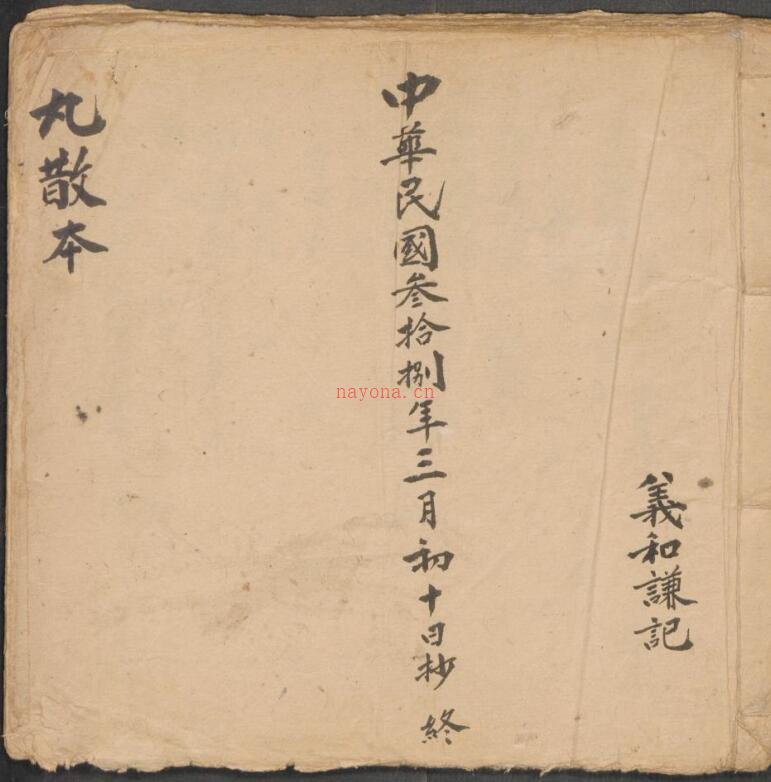 義和謙記
中華民國叁拾捌年三月初十日抄 終
丸散本
nayona.cn